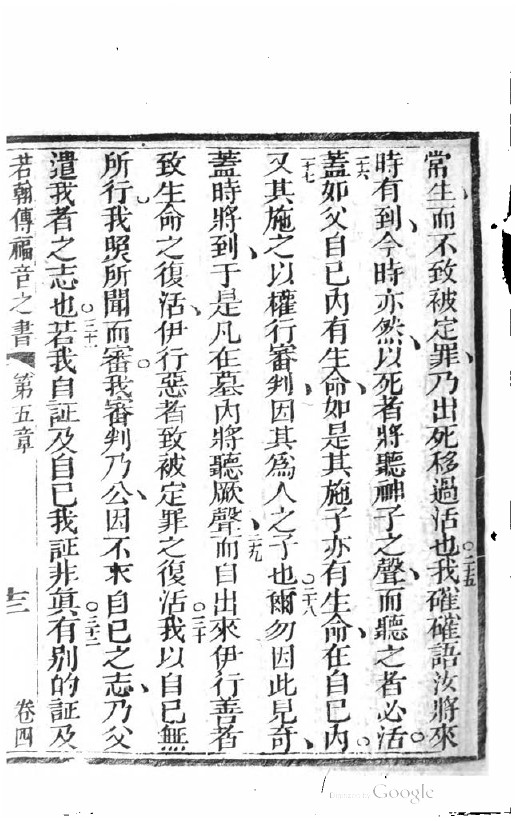 常生而不致被定罪乃出死移過活也○二十五我確確語汝將來
時有到今時亦然以死者將聽神子之聲而聽之者必活
二十六蓋如父自己內有生命如是其施子亦有生命在自己內
二十七又其施之以權行審判因其爲人之子也○二十八爾勿因此見奇
蓋時將到于是凡在墓內將聽厥聲二十九而自出來伊行善者
致生命之復活伊行惡者致被定罪之復活○三十我以自己無
所行我照所聞而審我審判乃公因不求自己之志乃父
遣我者之志也○三十一若我自証及自己我証非眞○三十二有別的証及
若翰傳福音之書 第五章 十三 卷四
Digitized by Google